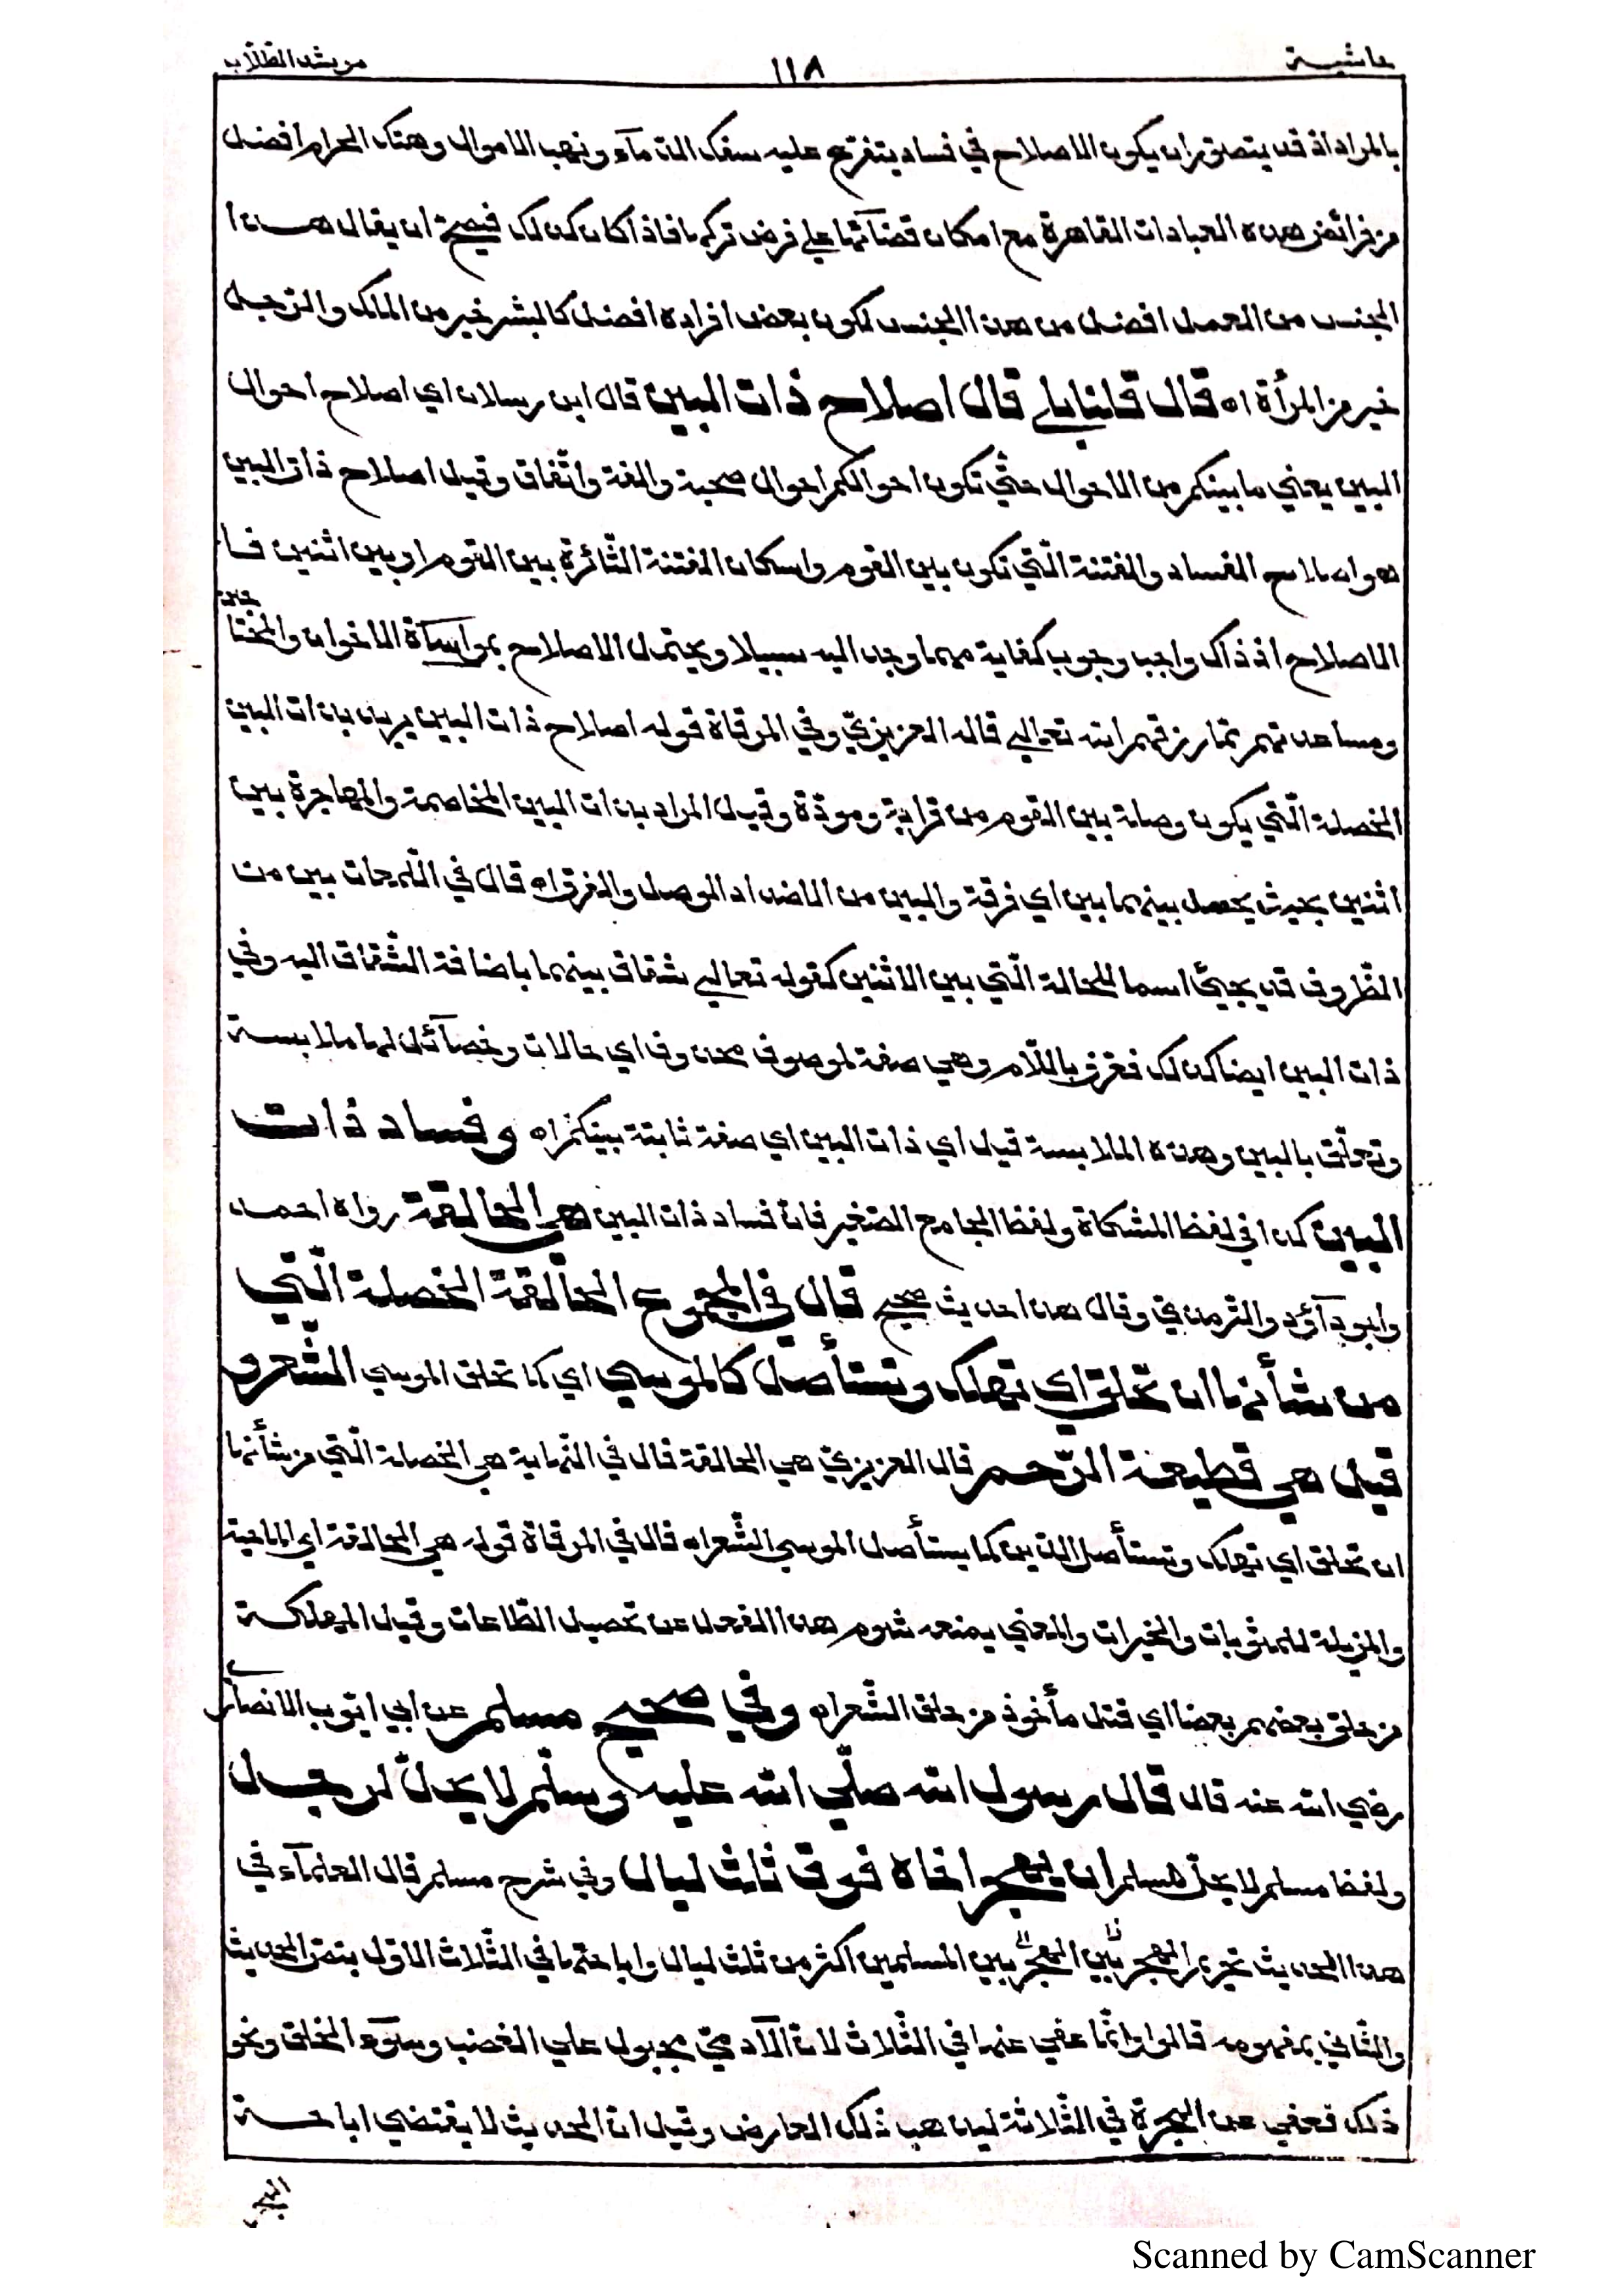 حاشية ١١٨ مرشد الطلّاب
بالمراد اذ قد يتصوّر ان يكون الاصلاح في فساد يتفرّع عليه سفك الدّمآء ونهب الاموال وهتك الحرام افضل
من فرائض هذه العبادات القاهرة مع امكان قضآئها علي فرض تركها فاذا كان كذلك فيصحّ ان يقال هذا
الجنس من العمل افضل من هذا الجنس لكون بعض افراده افضل كالبشر خير من الملك والرّجل
خير من المرأة اه قال قلنا بلي قال اصلاح ذات البين قال ابن رسلان اي اصلاح احوال
البين يعني ما بينكم من الاحوال حتّي تكون احوالكم احوال صحبة والفة واتّفاق وقيل اصلاح ذات البين
هو اصلاح الفساد والفتنة الّتي تكون بين القوم واسكان الفتنة الثّائرة بين القوم او بين اثنين فا
الاصلاح اذ ذاك واجب وجوب كفاية مهما وجد اليه سبيلا ويحتمل الاصلاح بمواساة الاخوان والمحتا
جين
ومساعدتهم بما رزقهم الله تعالي قاله العزيزيّ وفي المرقاة قوله اصلاح ذات البين يريد بذات البين
الخصلة الّتي يكون وصلة بين القوم من قرابة ومودّة وقيل المراد بذات البين المخاصمة والمهاجرة بين
اثنين بحيث يحصل بينهما بين اي فرقة والبين من الاضداد الوصل والفرق اه قال في اللّمحات بين من
الظّروف قد يجيئ اسما للحالة الّتي بين الاثنين كقوله تعالي شقاق بينهما باضافة الشّقاق اليه وفي
ذات البين ايضا كذلك فعرّف باللّام وهي صفة لموصوف محذوف اي حالات وخصآئل لها ملابسة
وتعلّق بالبين وهذه الملابسة قيل اي ذات البين اي صفة ثابتة بينكم اه وفساد ذات
البين كذا في لفظ المشكاة ولفظ الجامع الصّغير فانّ فساد ذات البين هي الحالقة رواه احمد
وابو دآؤد والتّرمذي وقال هذا حديث صحيح قال في المجموع الحالقة الخصلة الّتي
من شأنها ان تحلق اي تهلك وتستأصل كالموسي اي كما تحلق الموسي الشّعر و
قيل هي قطيعة الرّحم قال العزيزيّ هي الحالقة قال في النّهاية هي الخصلة الّتي من شأنها
ان تحلق اي تهلك وتستأصل الدّين كما يستأصل الموسي الشّعر اه قال في المرقاة قوله هي الحالقة اي الماحية
والمزيلة للمثوبات والخيرات والمعني يمنعه شوم هذا الفعل عن تحصيل الطّاعات وقيل المهلكة
من حلق بعضهم بعضا اي قتل مأخوذ من حلق الشّعر اه وفي صحيح مسلم عن ابي ايّوب الانصاري
رضي الله عنه قال قال رسول الله صلّي الله عليه وسلّم لا يحلّ لرجل
ولفظ مسلم لا يحلّ لمسلم ان يهجر اخاه فوق ثلث ليال وفي شرح مسلم قال العلمآء في
هذا الحديث تحريم الهجر بين الهجر بين المسلمين اكثر من ثلث ليال واباحتها في الثّلاث الاوّل بنصّ الحديث
والثّاني بمفهومه قالوا وانّما عفي عنها في الثّلاث لانّ الآدميّ مجبول علي الغضب وسوء الخلق ونحو
ذلك فعفي عن الهجرة في الثّلاثة ليذهب ذلك العارض وقيل انّ الحديث لا يقتضي اباحة
الهجر
Scanned by CamScanner